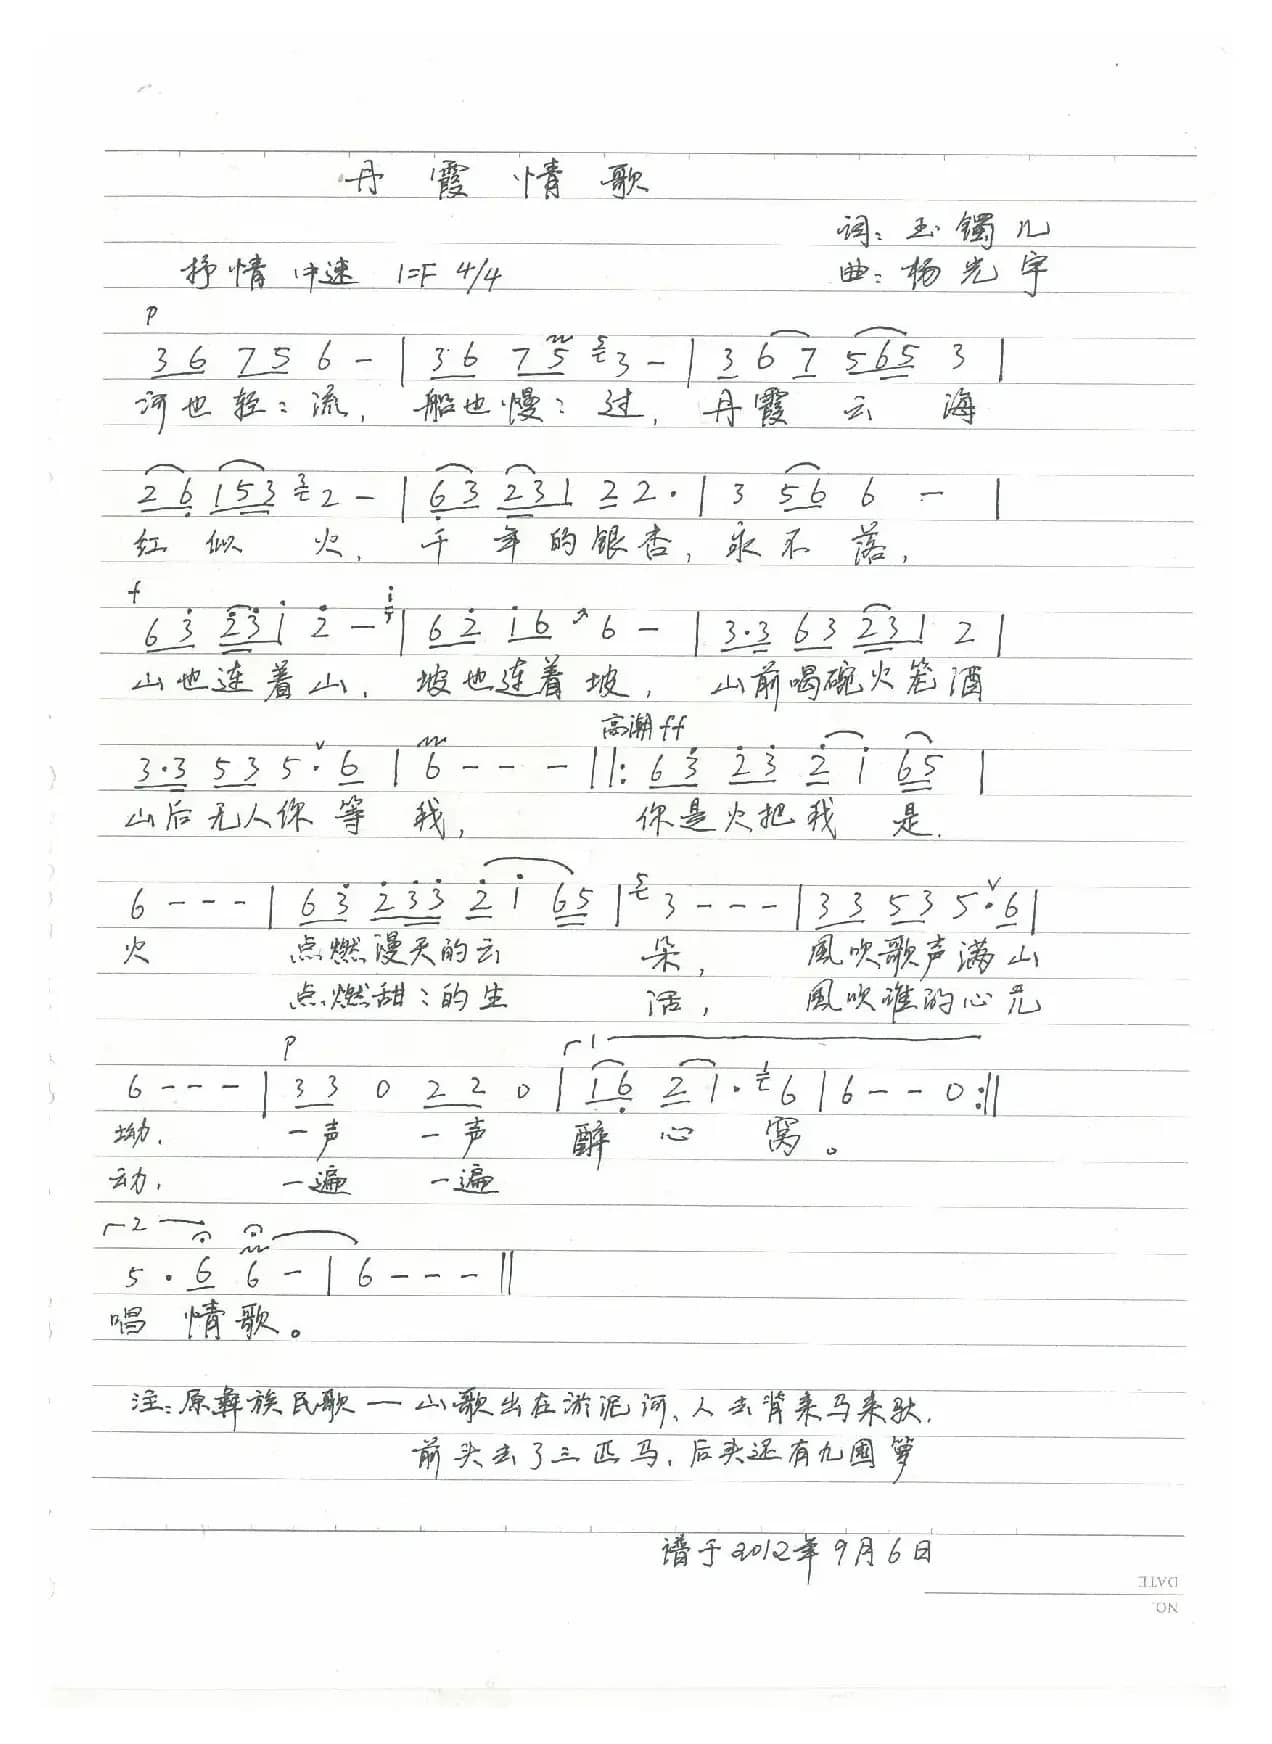 丹霞情歌
词:玉镯儿
抒情 中速 1=F 4/4
曲:杨光宇
p
3 6 7 5 6 - | 3 6 7 5 5 3 - | 3 6 7 5 6 5 3 |
河也轻:流, 船也慢:过, 丹霞云海
2 6 1 5 3 3 2 - | 6 3 2 3 1 2 2 · | 3 5 6 6 - |
红似火, 千年的银杏, 永不落,
f
6 3 2 3 1 2 - i | 6 2 1 6 6 - | 3 · 3 6 3 2 3 1 2 |
山也连着山, 坡也连着坡, 山前喝碗火笼酒
高潮 ff
3 · 3 5 3 5 · 6 | 6 - - - ||: 6 3 2 3 2 1 6 5 |
山后无人你等我, 你是火把我是.
6 - - - | 6 3 2 3 3 2 1 6 5 | 5 3 - - - | 3 3 5 3 5 · 6 |
火 点燃漫天的云朵, 風吹歌声满山
点燃甜:的生活, 風吹谁的心咒
p 1
6 - - - | 3 3 0 2 2 0 | 1 6 2 1 · 1 6 | 6 - - 0 :||
坳. 一声 一声 醉心窝。
动, 一遍 一遍
2
5 · 6 6 - | 6 - - - ||
唱情歌。
注:原彝族民歌一山歌出在淤泥河、人去背来马来驮.
前头去了三匹马,后头还有九囤箩
谱于2012年9月6日
DATE
NO.